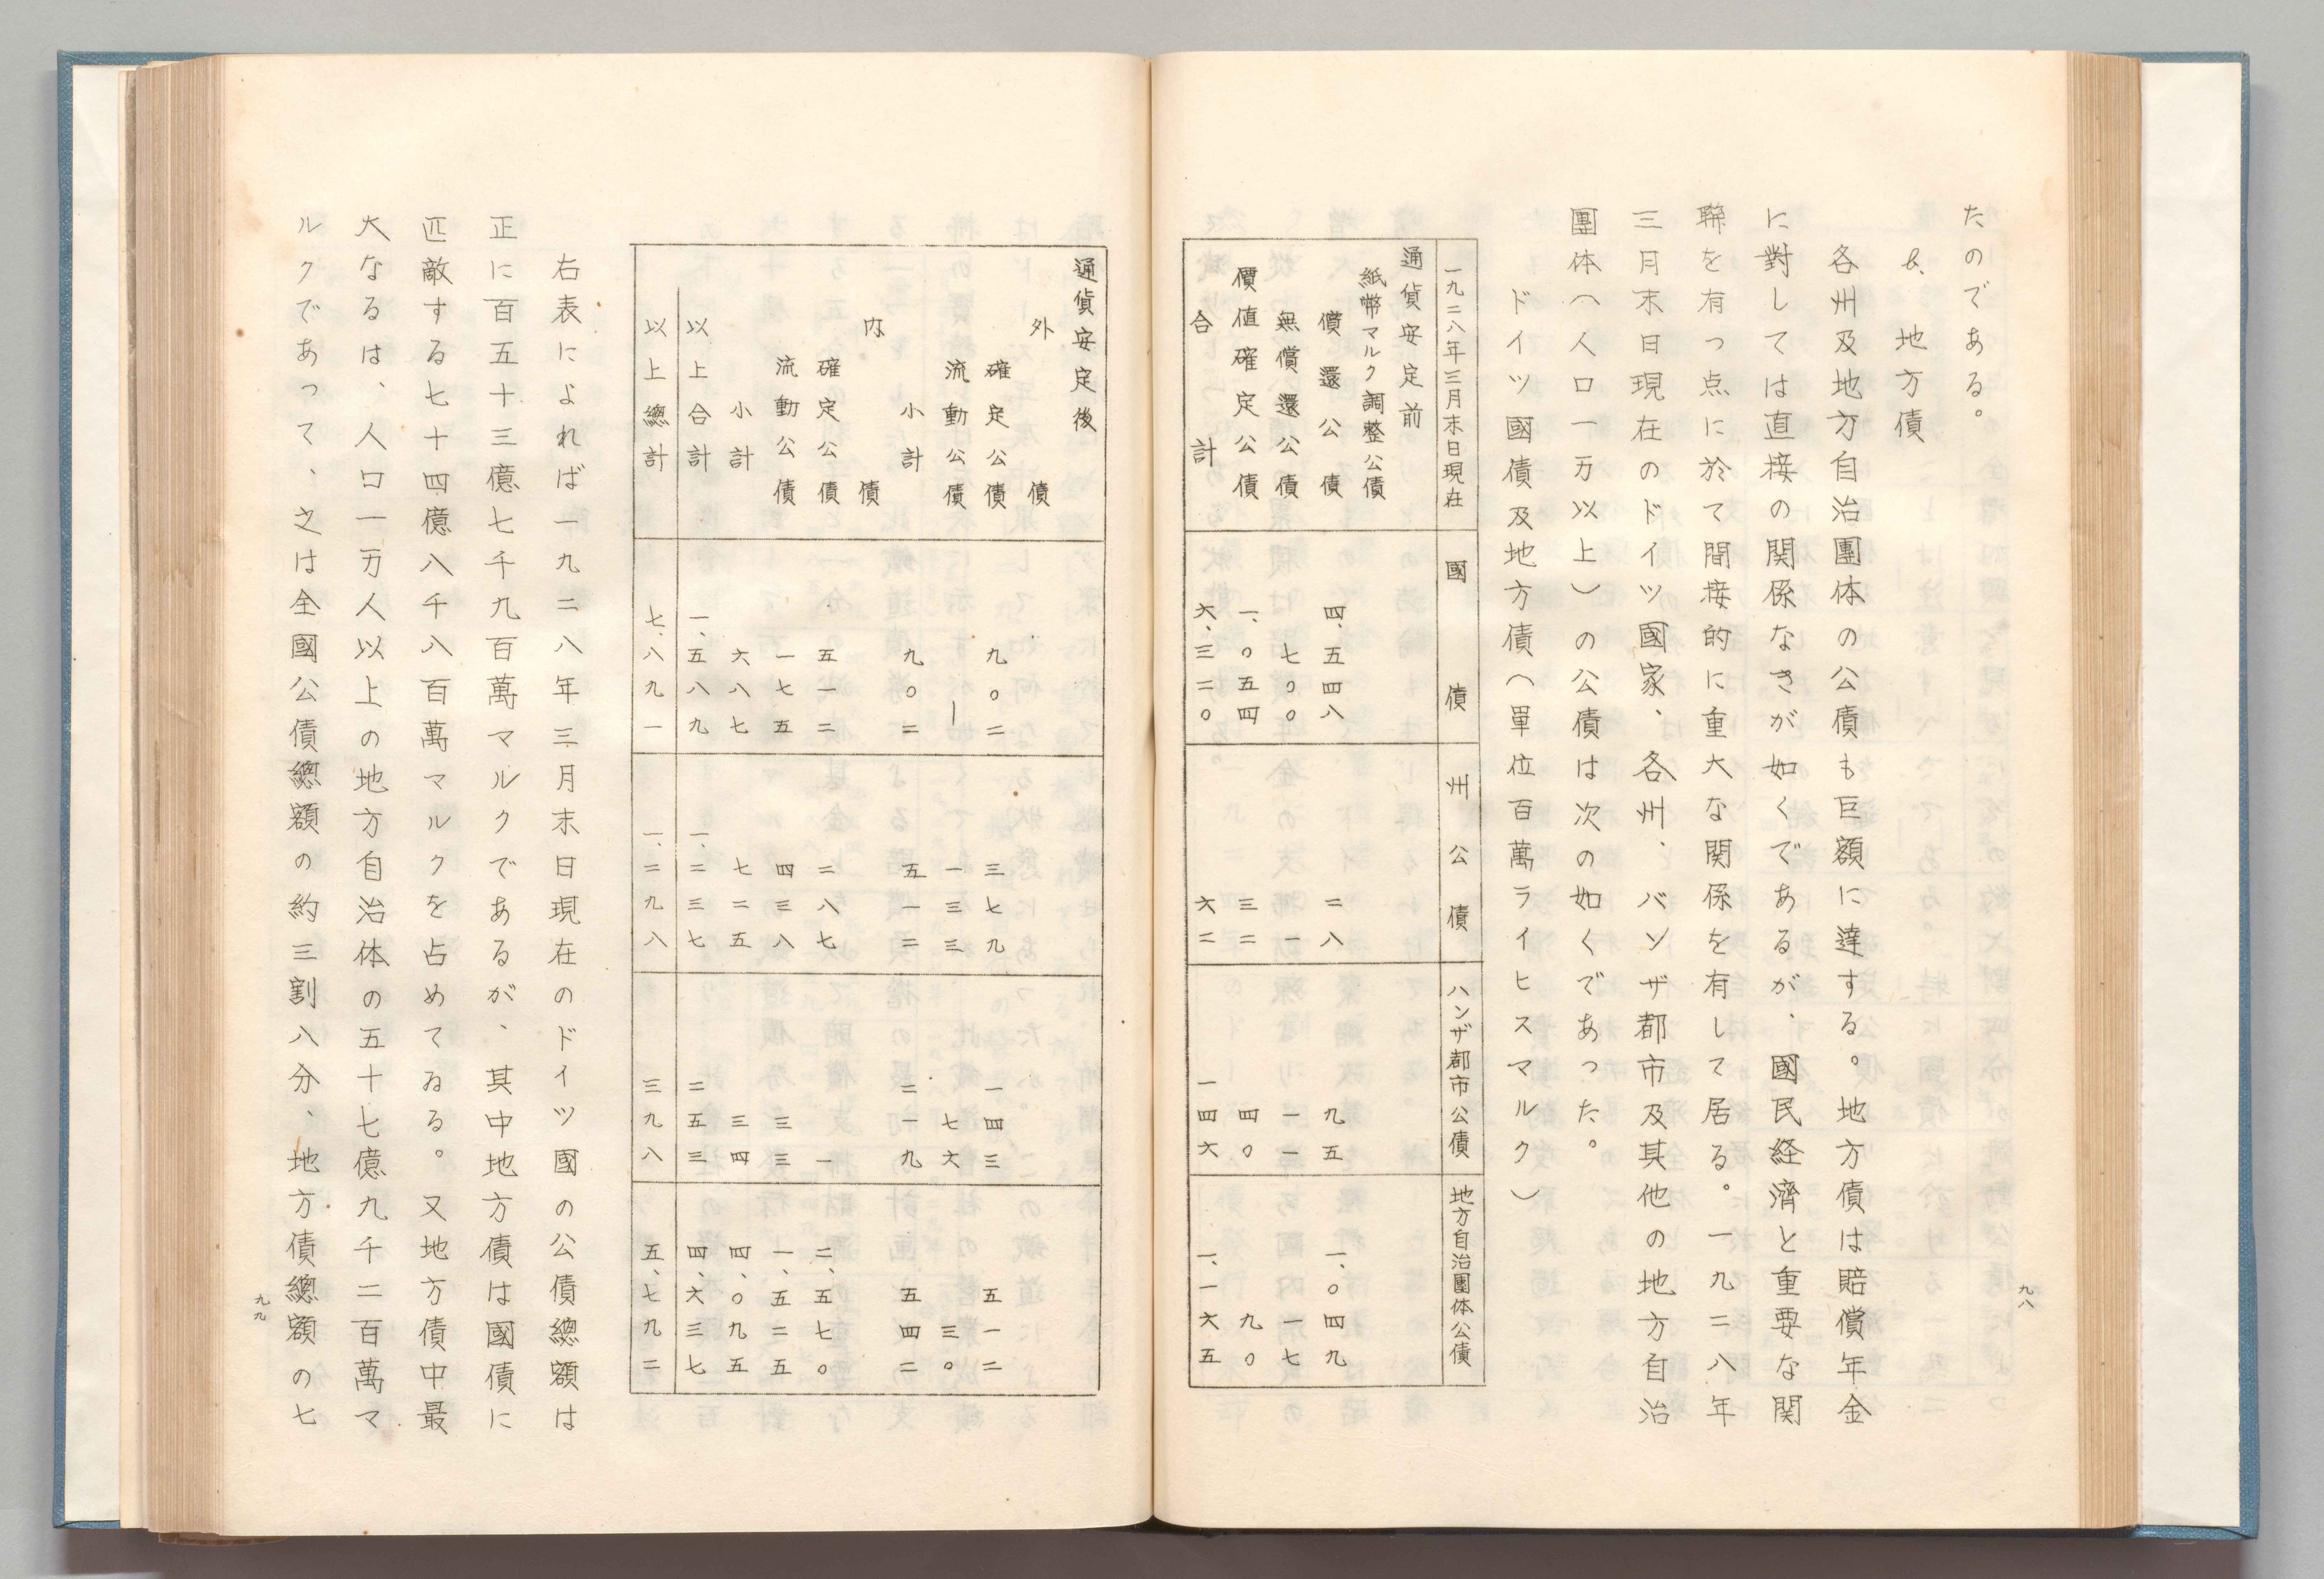 たのである。
&、地方債
各州及地方自治團体の公債も巨額に達する。地方債は賠償年金
に對しては直接の関係なきが如くであるが、國民経済と重要な関
聯を有つ点に於て間接的に重大な関係を有して居る。一九二八年
三月末日現在のドイツ國家、各州、バンザ都市及其他の地方自治
團体（人口一万以上）の公債は次の如くであった。
ドイツ國債及地方債（單位百萬ライヒスマルク）
一九二八年三月末日現在 國債 州公債 ハンザ都市公債 地方自治團体公債
通貨安定前
紙幣マルク調整公債
償還公債 四、五四八 二八 九五 一、〇四九
無償還公債 七〇〇 一 一一 一七
價値確定公債 一、〇五四 三二 四〇 九〇
合計 六、三二〇 六二 一四六 一、一六五
九八
通貨安定後
外債
確定公債 九〇二 三七九 一四三 五一二
流動公債 ー 一三三 七六 三〇
小計 九〇二 五一二 二一九 五四二
内債
確定公債 五一二 二八七 一 二、五七〇
流動公債 一七五 四三八 三三 一、五二五
小計 六八七 七二五 三四 四、〇九五
以上合計 一、五八九 一、二三七 二五三 四、六三七
以上總計 七、八九一 一、二九八 三九八 五、七九二
右表によれば一九二八年三月末日現在のドイツ國の公債總額は
正に百五十三億七千九百萬マルクであるが、其中地方債は國債に
匹敵する七十四億八千八百萬マルクを占めてゐる。又地方債中最
大なるは、人口一万人以上の地方自治体の五十七億九千二百萬マ
ルクであって、之は全國公債總額の約三割八分、地方債總額の七
九九